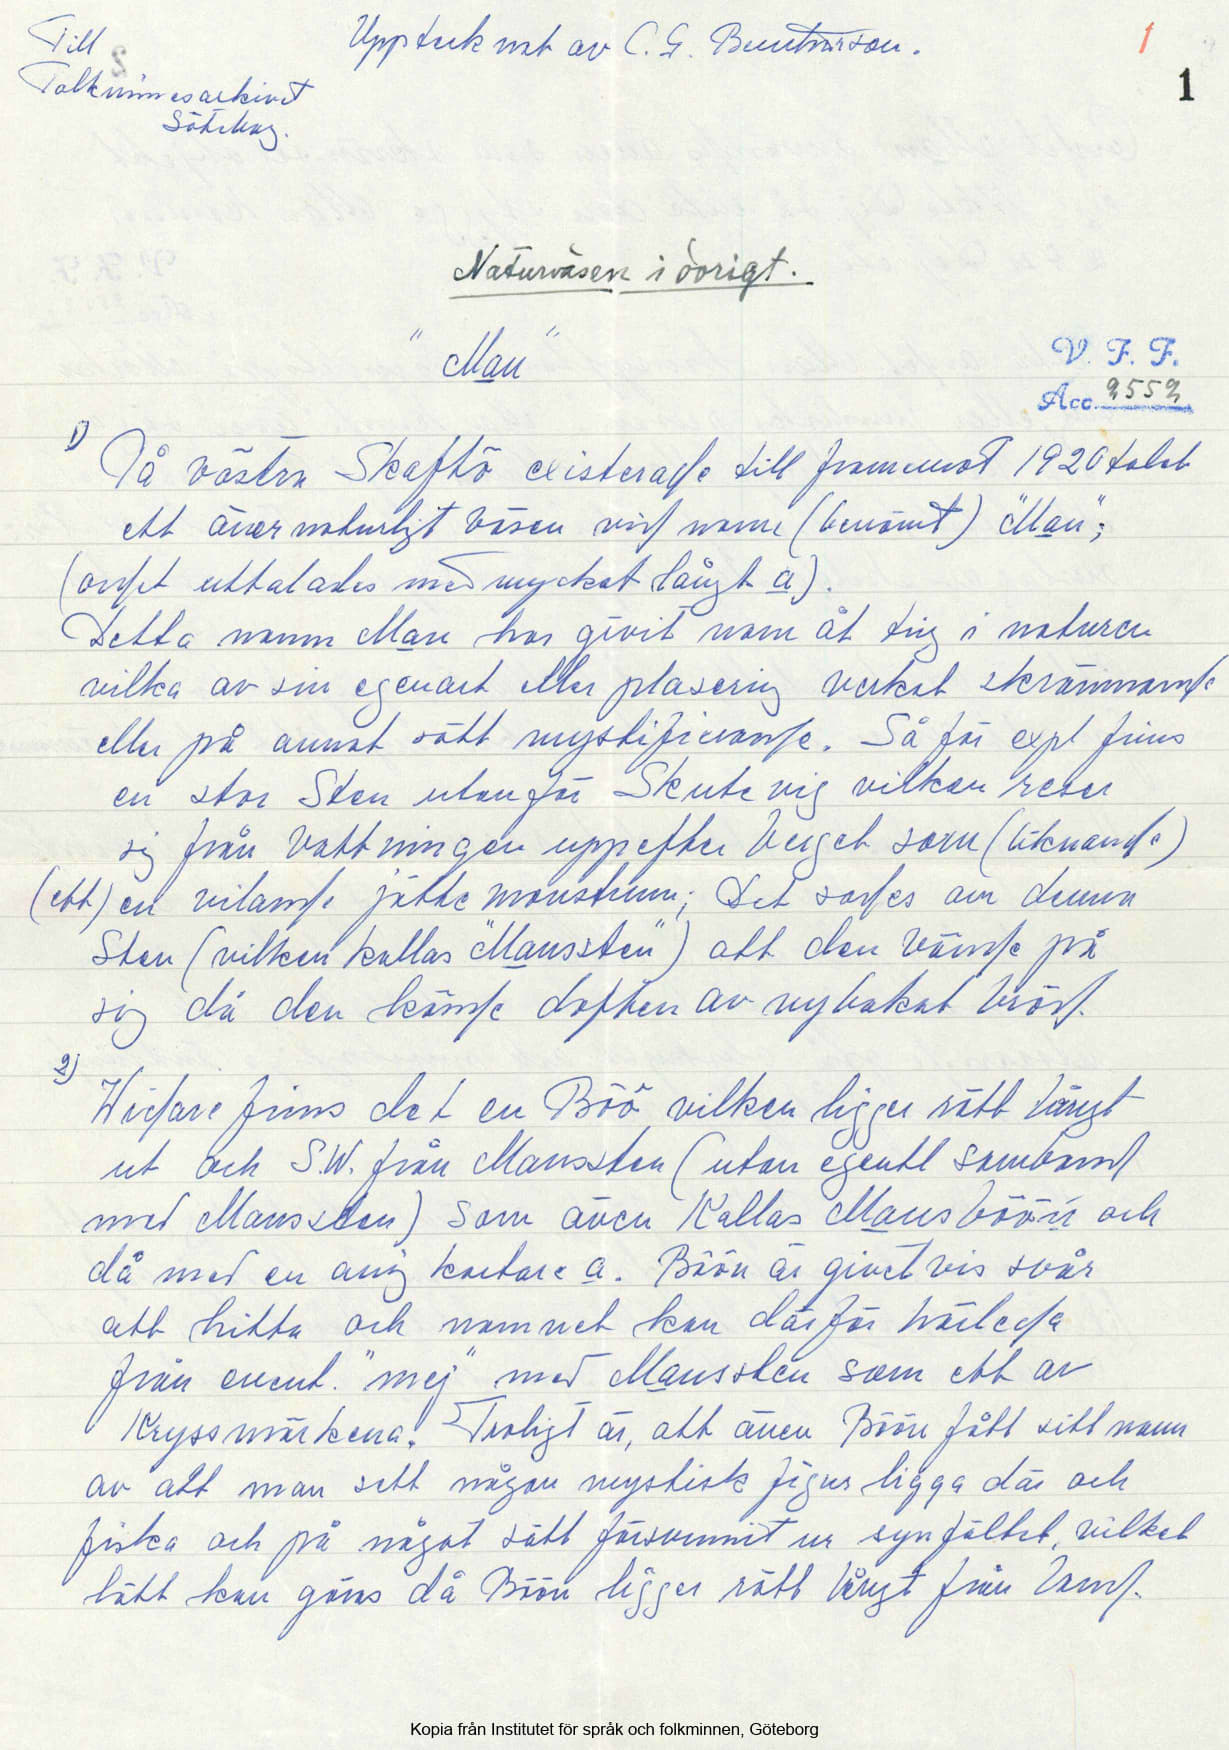 Till
Folkminnesarkivet
Göteborg.
Upptecknat av C. G.
1
1
Naturväsen i övrigt.
"Man"
V. F. F.
Acc. 2552
1) På västra Skaftö existerade till frammemot 1920 talet
ett övernaturligt väsen vid namn (benämt) "Man";
(ordet uttalades med mycket långt a).
Detta namn Man har givit namn åt ting i naturen
vilka av sin egenart eller plasering verkat skrämmande
eller på annat sätt mystifierande. Så för expl finns
en stor Sten utanför Skutevig vilken reser
sig från vattningen uppefter berget som (liknande)
(ett) en vilande jättemonstrum; Det sades om denna
Sten (vilken kallas "Manssten") att den vände på
sig då den kände doften av nybakat bröd.
2) Widare finns det en Böö vilken ligger rätt långt
ut och S.W. från Manssten (utan egentl samband
med Manssten) som även Kallas Mansböön och
då med en aning kortare a. Böön är givetvis svår
att hitta och namnet kan därför härleda
från event. "mej" med Manssten som ett av
Kryssmärkena. Troligt är, att även Böön fått sitt namn
av att man sett någon mystisk figur ligga där och
fiska och på något sätt försvunnit ur synfältet, vilket
lätt kan göras då Böön ligger rätt långt från land.
Kopia från Institutet för språk och folkminnen, Göteborg